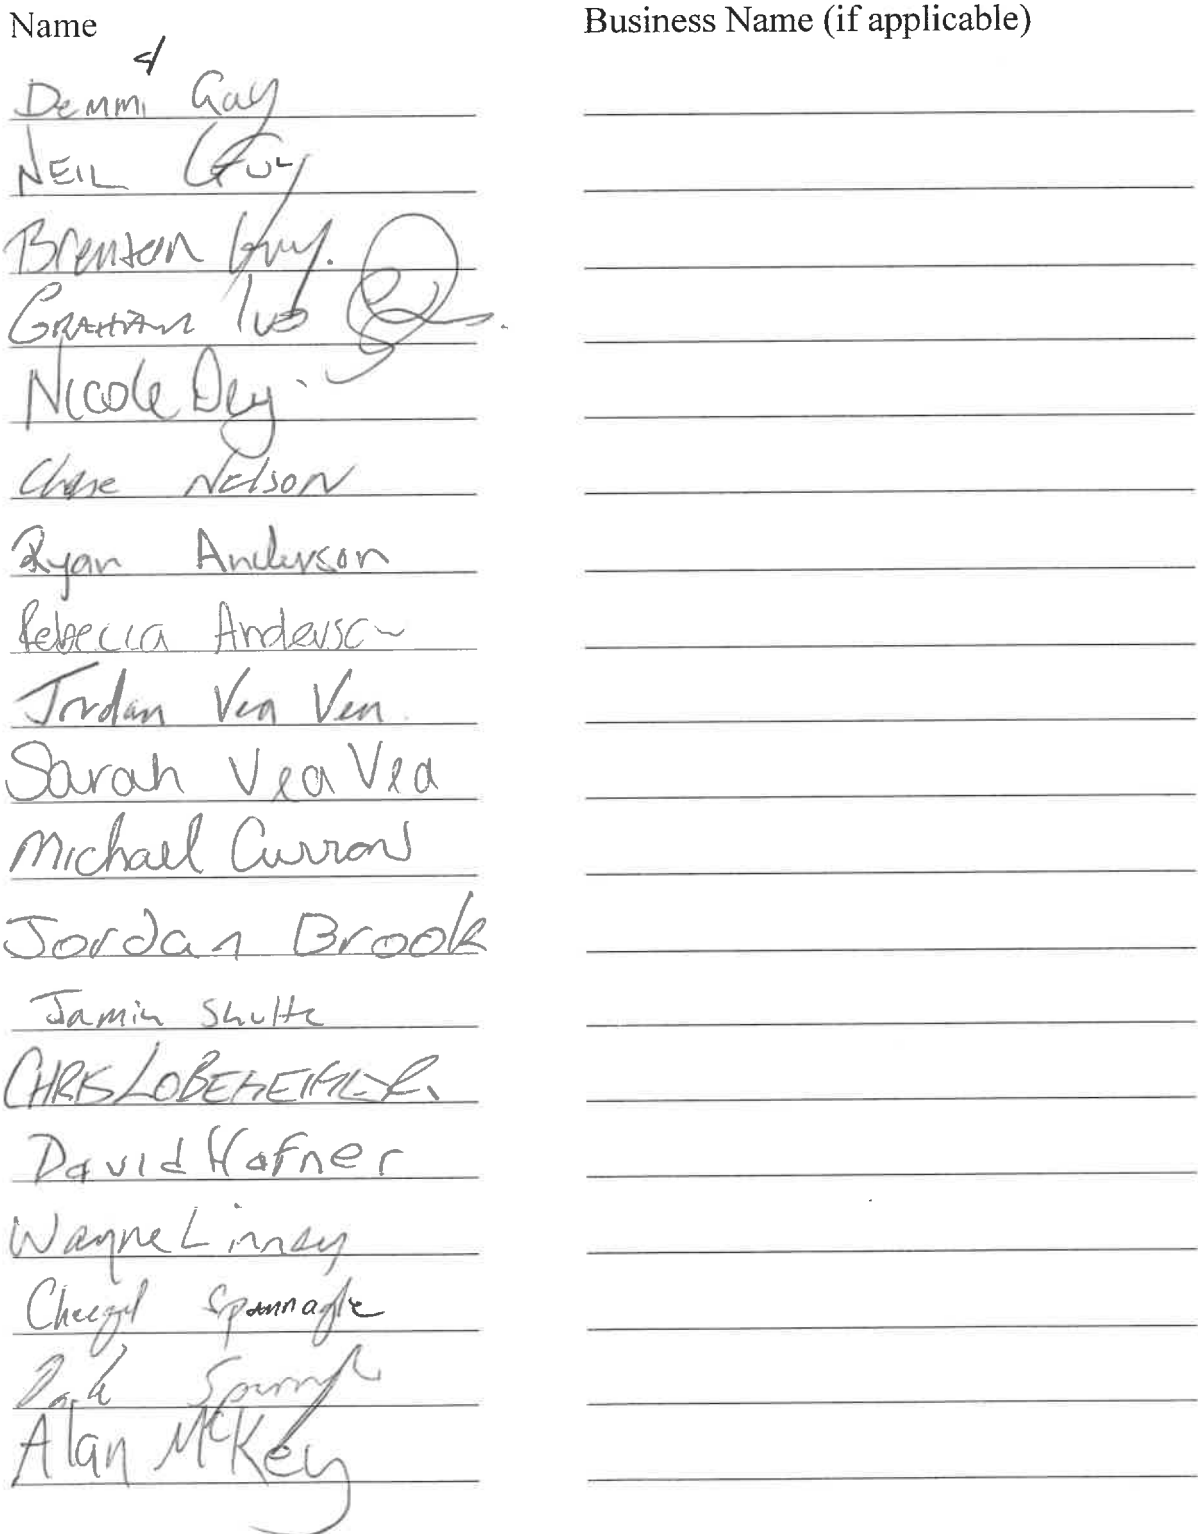 Name Business Name (if applicable)
Demmi Gay
NEIL GUY
Brenton Guy.
GRAHAM
Nicole Dey
Nelson
Ryan Anderson
Rebecca Anderson
Jordan Vea Vea
Sarah Vea Vea
Michael Curran
Jordan Brook
Jamin Shultz
CHRIS
David Hafner
Wayne Linney
Cheryl Spannagle
Alan McKey